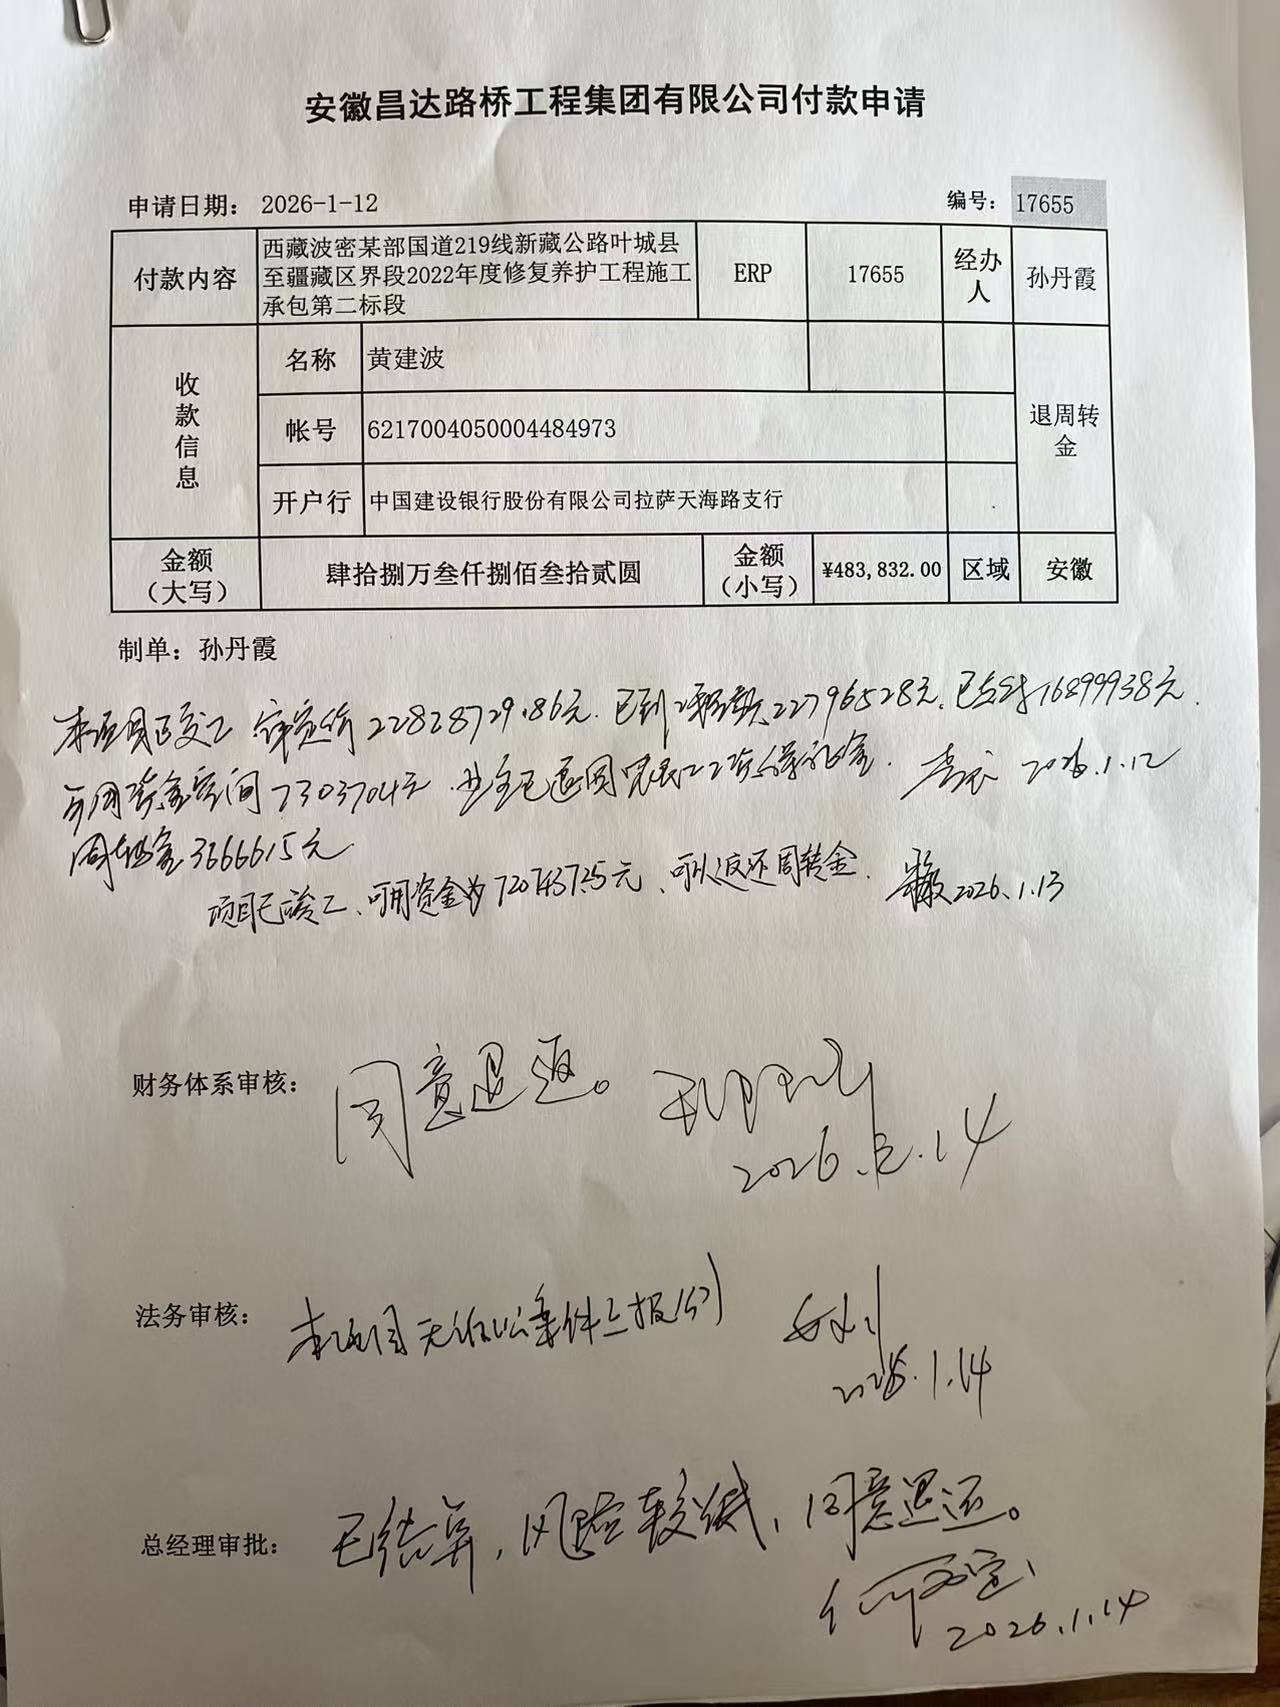 安徽昌达路桥工程集团有限公司付款申请
申请日期： 2026-1-12 编号： 17655
付款内容 西藏波密某部国道219线新藏公路叶城县至疆藏区界段2022年度修复养护工程施工承包第二标段 ERP 17655 经办人 孙丹霞
收款信息 名称 黄建波 退周转金
帐号 6217004050004484973
开户行 中国建设银行股份有限公司拉萨天海路支行
金额（大写） 肆拾捌万叁仟捌佰叁拾贰圆 金额（小写） ¥483,832.00 区域 安徽
制单：孙丹霞
本项目已交工 审定价22828729.86元.已到工程款22796528元.已支付16899938元.
可用资金空间7303704元 业主已退回农民工工资保证金. 2026.1.12
周转金3666615元
项目已竣工、可用资金为7207437.25元、可以返还周转金. 2026.1.13
财务体系审核： 同意退返。
2026.1.14
法务审核： 本项目无诉讼案件上报 2026.1.14
总经理审批： 已结算，风险较低，同意退还。
2026.1.14